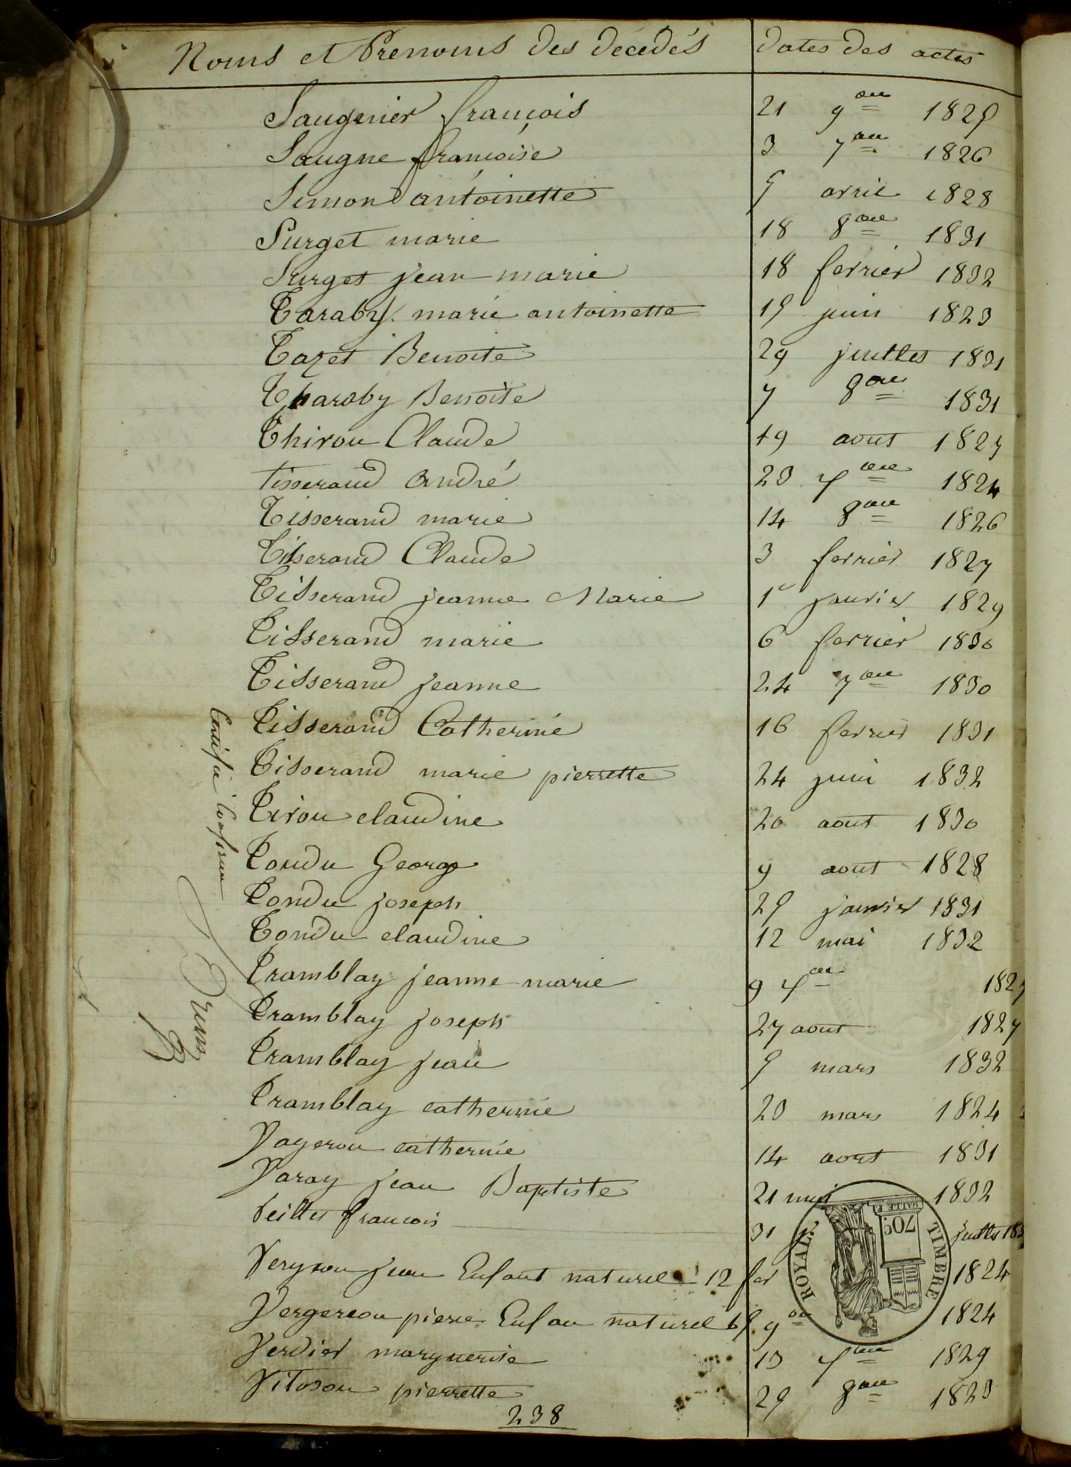 Noms et Prenoms des décédés dates des actes
Saugenier françois 21 9bre 1825
Saugne françoise 3 7bre 1826
Simon antoinette 5 avril 1828
Surget marie 18 8bre 1831
Surget jean marie 18 fevrier 1832
Taraby marie antoinette 15 juin 1823
Tazet Benoite 29 juillet 1831
Tharaby Benoite 7 8bre 1831
Thirou Claude 19 aout 1827
tisserand andré 23 Xbre 1824
Tisserand marie 14 8bre 1826
Tisserand Claude 3 fevrier 1827
Tisserand jeanne Marie 1r janvier 1829
Tisserand marie 6 fevrier 1830
Tisserand jeanne 24 7bre 1830
Tisserand Catherine 16 fevrier 1831
Tisserand marie pierrette 24 juin 1832
Tirou claudine 20 aout 1830
Tondu George 9 aout 1828
Tondu joseph 25 janvier 1831
Tondu claudine 12 mai 1832
Tramblay jeanne marie 9 Xbre
Tramblay joseph 27 aout 1827
Tramblay jean 5 mars 1832
Tramblay catherine 23 mars 1824
Vayerou catherine 14 aout 1831
Varay jean Baptiste 21 mai 1832
Veillet francois 31 juillet
Veryson jean Enfant naturel 12 fer 1824
Vergereon pierre Enfan naturel 9bre 1824
Verdier marguerite 13 Xbre 1829
Vitoson pierrette 29 8bre 1823
238
Certifié Conforme
TIMBRE ROYAL
70c